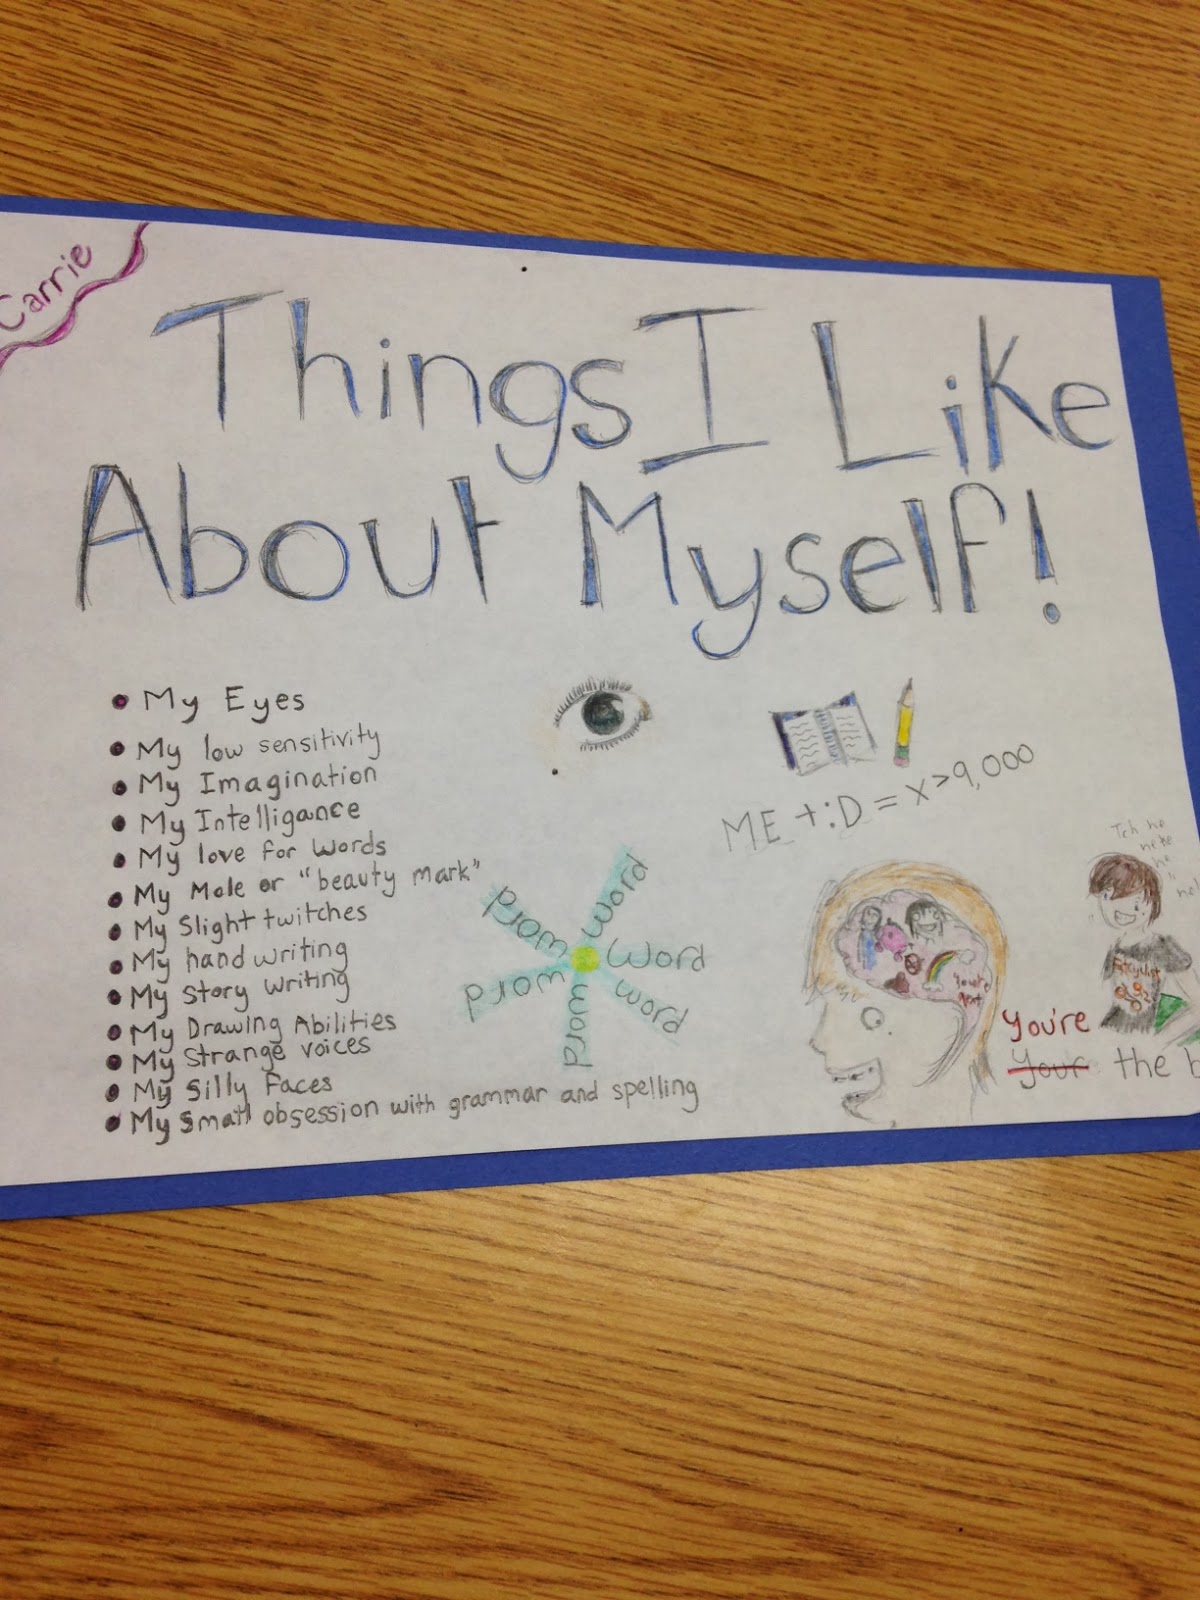 Carrie
Things I Like
About Myself!
My Eyes
My low sensitivity
My Imagination
My Intelligance
My love for words
My Mole or "beauty mark"
My Slight twitches
My handwriting
My Story writing
My Drawing Abilities
My Strange voices
My Silly Faces
My Small obsession with grammar and spelling
word
word
word
word
word
word
ME + :D = x > 9,000
You're
next
You're
Your the b